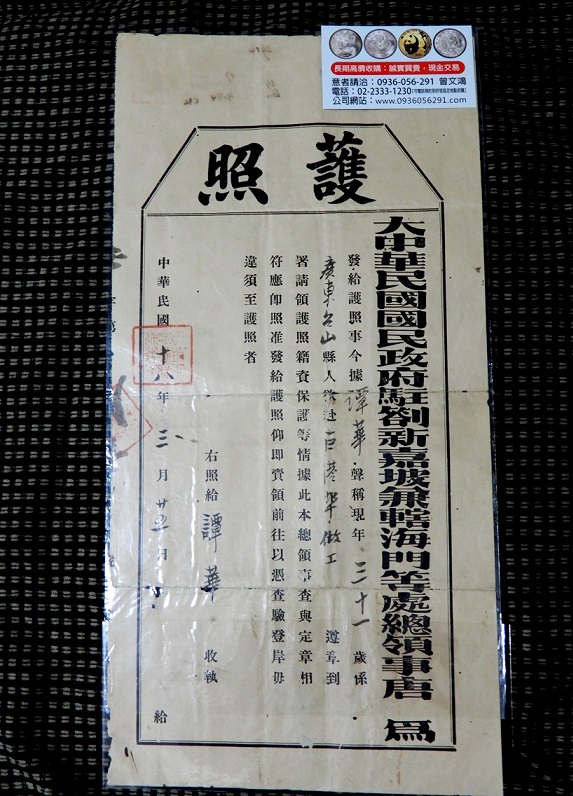 長期高價收購：誠實買賣，現金交易
意者請洽：0936-056-291 曾文鴻
電話：02-2333-1230
公司網站：www.0936056291.com
護照
大中華民國國民政府駐劄新嘉坡兼轄海門等處總領事唐 為
發給護照事今據譚華聲稱現年三十一歲係
廣東台山縣人欲赴巨港埠做工 遵章到
署請領護照藉資保護等情據此本總領事查與定章相
符應卽照准發給護照仰即賫領前往以憑查驗登岸毋
違須至護照者
右照給譚華 收執
中華民國十八年三月廿五日 給